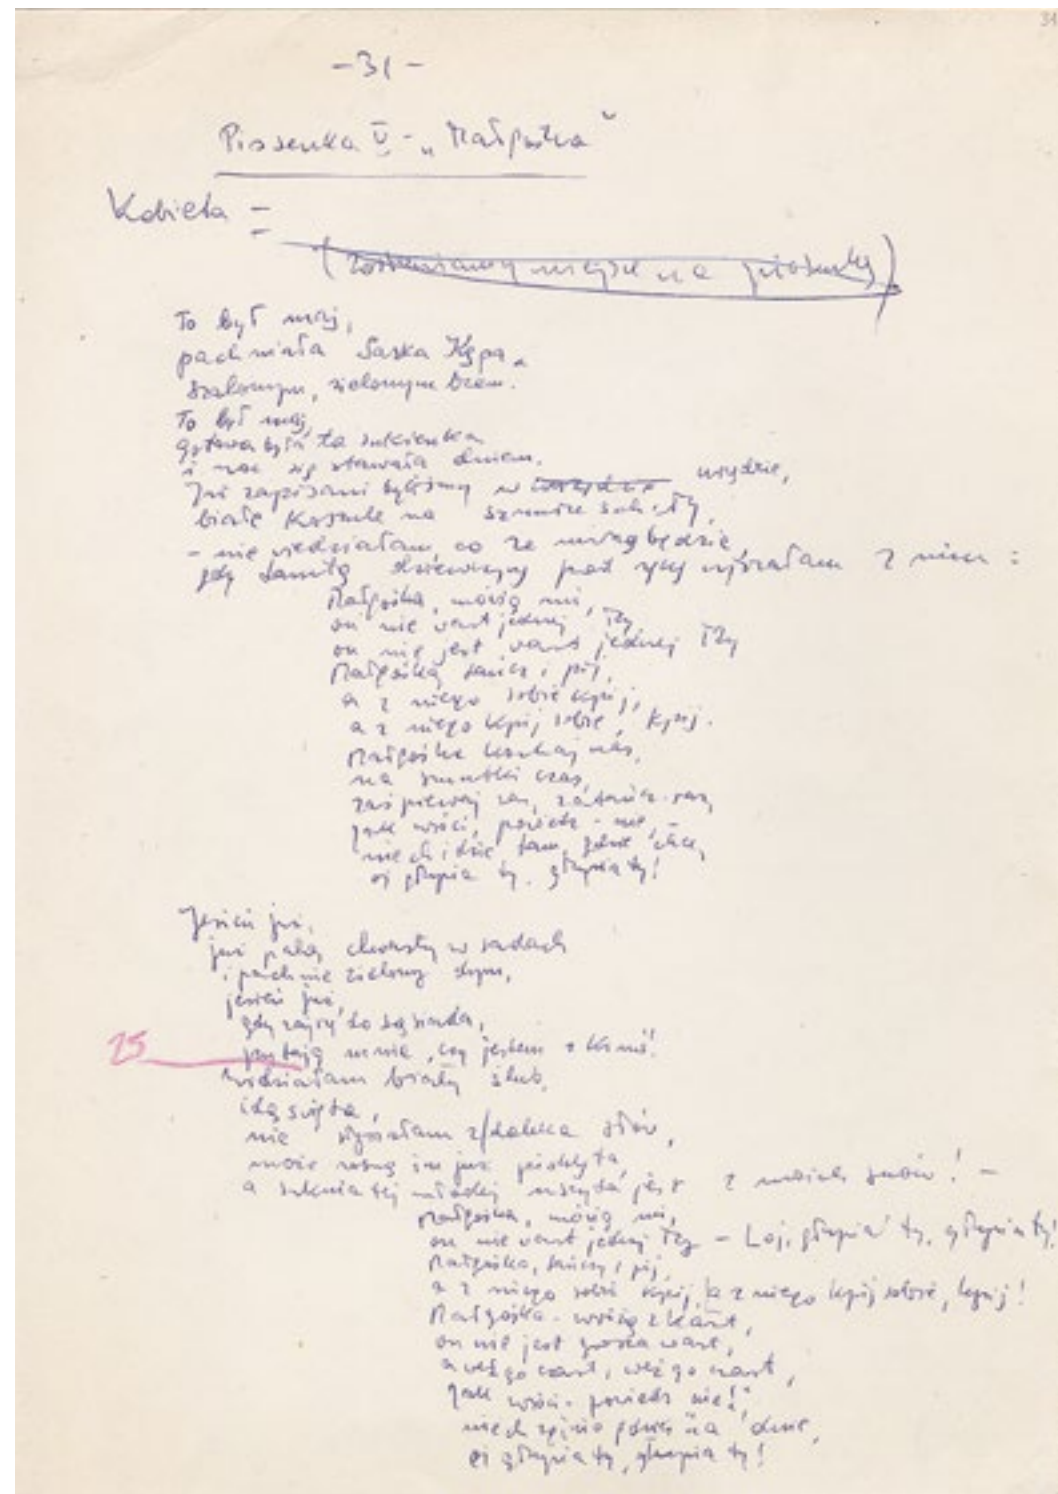 31
-31-
Piosenka V - „Małgośka"
Kobieta =
(zostawiamy miejsce na piosenkę)
To był maj,
pachniała Saska Kępa
szalonym, zielonym bzem.
To był maj,
gotowa była ta sukienka
i noc się stawała dniem.
Już zapisani byliśmy w urzędzie urzędzie,
białe koszule na sznurze schły,
- nie wiedziałam, co ze mną będzie,
gdy tamtą dziewczynę pod rękę ujrzałam z nim:
Małgośka, mówią mi,
on nie wart jednej łzy
on nie jest wart jednej łzy
Małgośka, tańcz i pij,
a z niego sobie kpij,
a z niego kpij sobie, kpij.
Małgośka kochaj nas,
na smutki czas,
zaśpiewaj raz, zatańcz raz,
jak wróci, powiedz - nie,
niech idzie tam, gdzie chce,
ej głupia ty, głupia ty!
Jesień już,
już palą chwasty w sadach
i pachnie zielony dym,
jesień już,
gdy zajrzę do sąsiada,
25
pytają mnie, czy jestem z kimś.
Widziałam biały ślub,
idą święta,
nie słyszałam z daleka słów,
może rosną im już pisklęta,
a suknia tej młodej uszyta jest z moich snów! -
Małgośka, mówią mi,
on nie wart jednej łzy - Loj, głupia ty, głupia ty!
Małgośka, tańcz i pij,
a z niego sobie kpij, a z niego kpij sobie, kpij!
Małgośka - wróżą z kart,
on nie jest grosza wart,
a weź go czart, weź go czart,
jak wróci - powiedz nie!,
niech zginie gdzieś na dnie,
ej głupia ty, głupia ty!